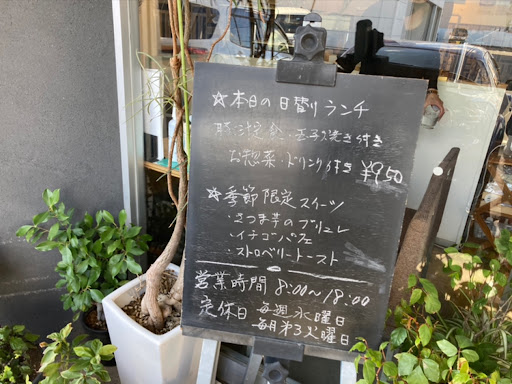 ☆本日の日替りランチ
豚汁定食・玉子焼き付き
お惣菜・ドリンク付き ¥950
☆季節限定スイーツ
・さつま芋のブリュレ
・イチゴパフェ
・ストロベリートースト
営業時間 8:00〜18:00
定休日 毎週水曜日
毎月第3火曜日